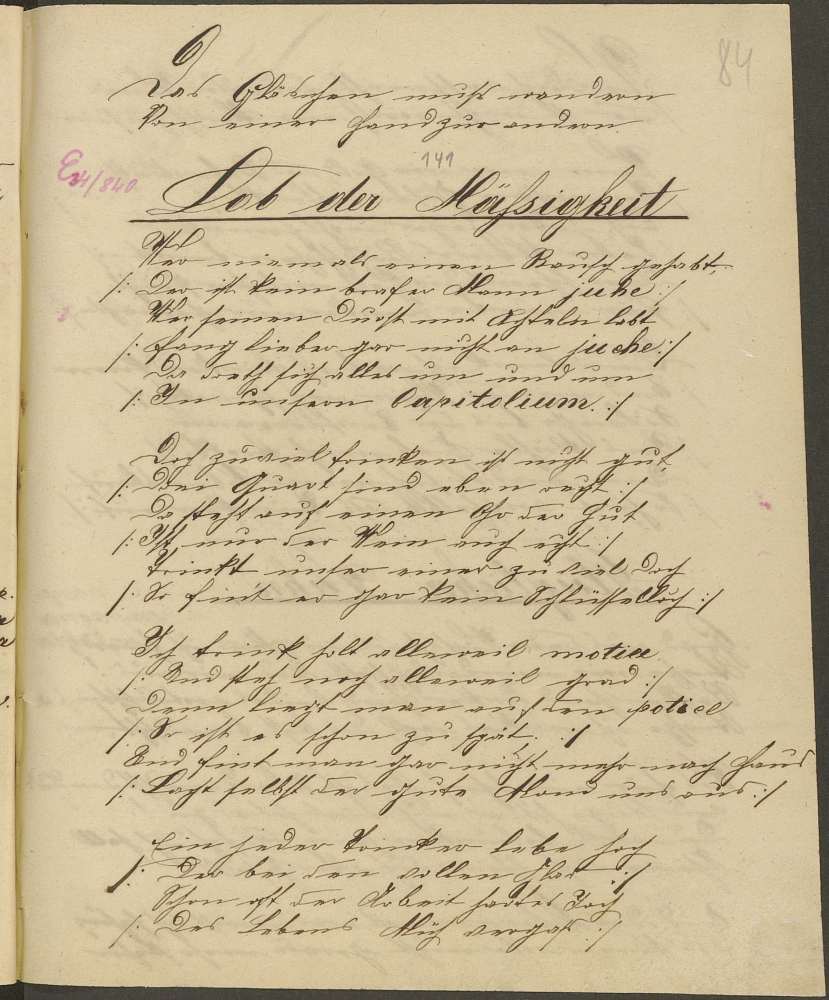 6
84
Das Gläschen muß wandern
Von einer Hand zur andern
141
En 4/840
Lob der Mäßsigkeit
Wer niemals einen Rausch gehabt,
/: Der ist kein brafer Mann juhe :/
Wer seinen Durst mit Achteln labt
/: Fang lieber gar nicht an juche :/
Da dreth sich alles um und um
/: In unsern Capitolium. :/
Doch zuviel trinken ist nicht gut,
/: Drei Quart sind eben recht :/
Da steht auf einen Ohr der Hut
/: Ist nur der Wein auch echt :/
Trinkt unser einer zu viel doch
/: So find't er gar kein Schlüsselloch :/
Ich trink halt alleweil
/: Und steh noch alleweil grad :/
Denn liegt man auf den
/: So ist es schon zu spät. :/
Und fint man gar nicht mehr nach Haus
/: Lacht selbst der gute Mond uns aus :/
Ein jeder Trinker lebe hoch
/: Der bei den vollen Glas :/
Schon oft der Arbeit hartes Joch
/: Des Lebens Müh vergaß :/